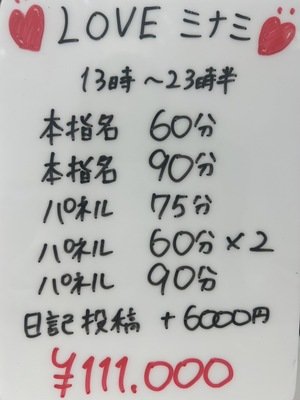 LOVE ミナミ
13時～23時半
本指名 60分
本指名 90分
パネル 75分
パネル 60分×2
パネル 90分
日記投稿 +6000円
¥111.000